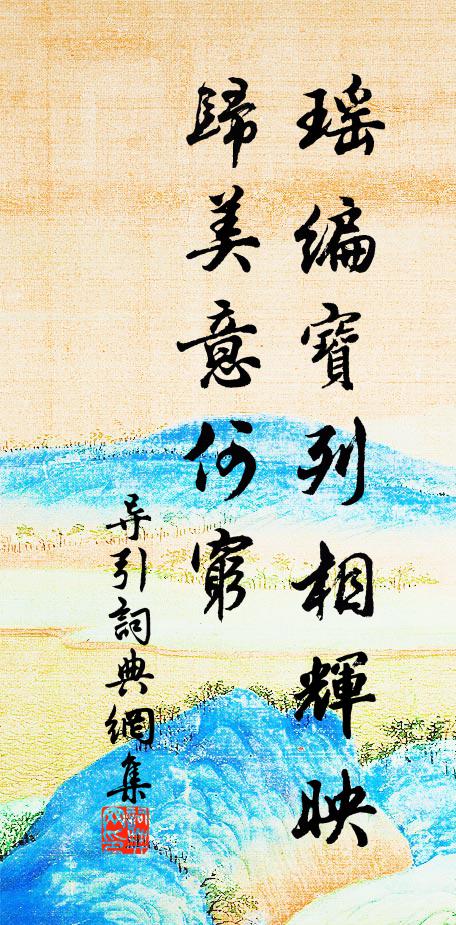 瑶編寶列相輝映
歸美意何窮
导引詞典網集